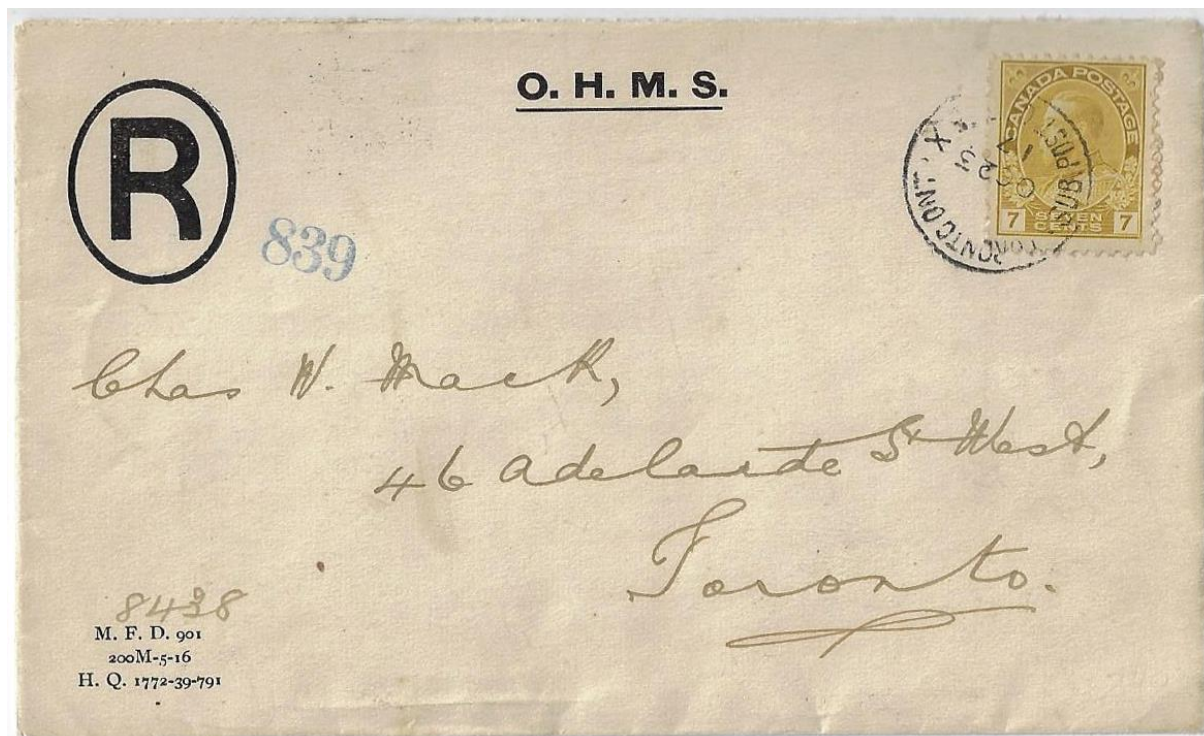 O. H. M. S.
R
839
CANADA POSTAGE
7 SEVEN CENTS 7
TORONTO ONT.
SUB POST
X
OC 23
17
Chas W. Mack,
46 Adelaide St West,
Toronto.
8438
M. F. D. 901
200M-5-16
H. Q. 1772-39-791